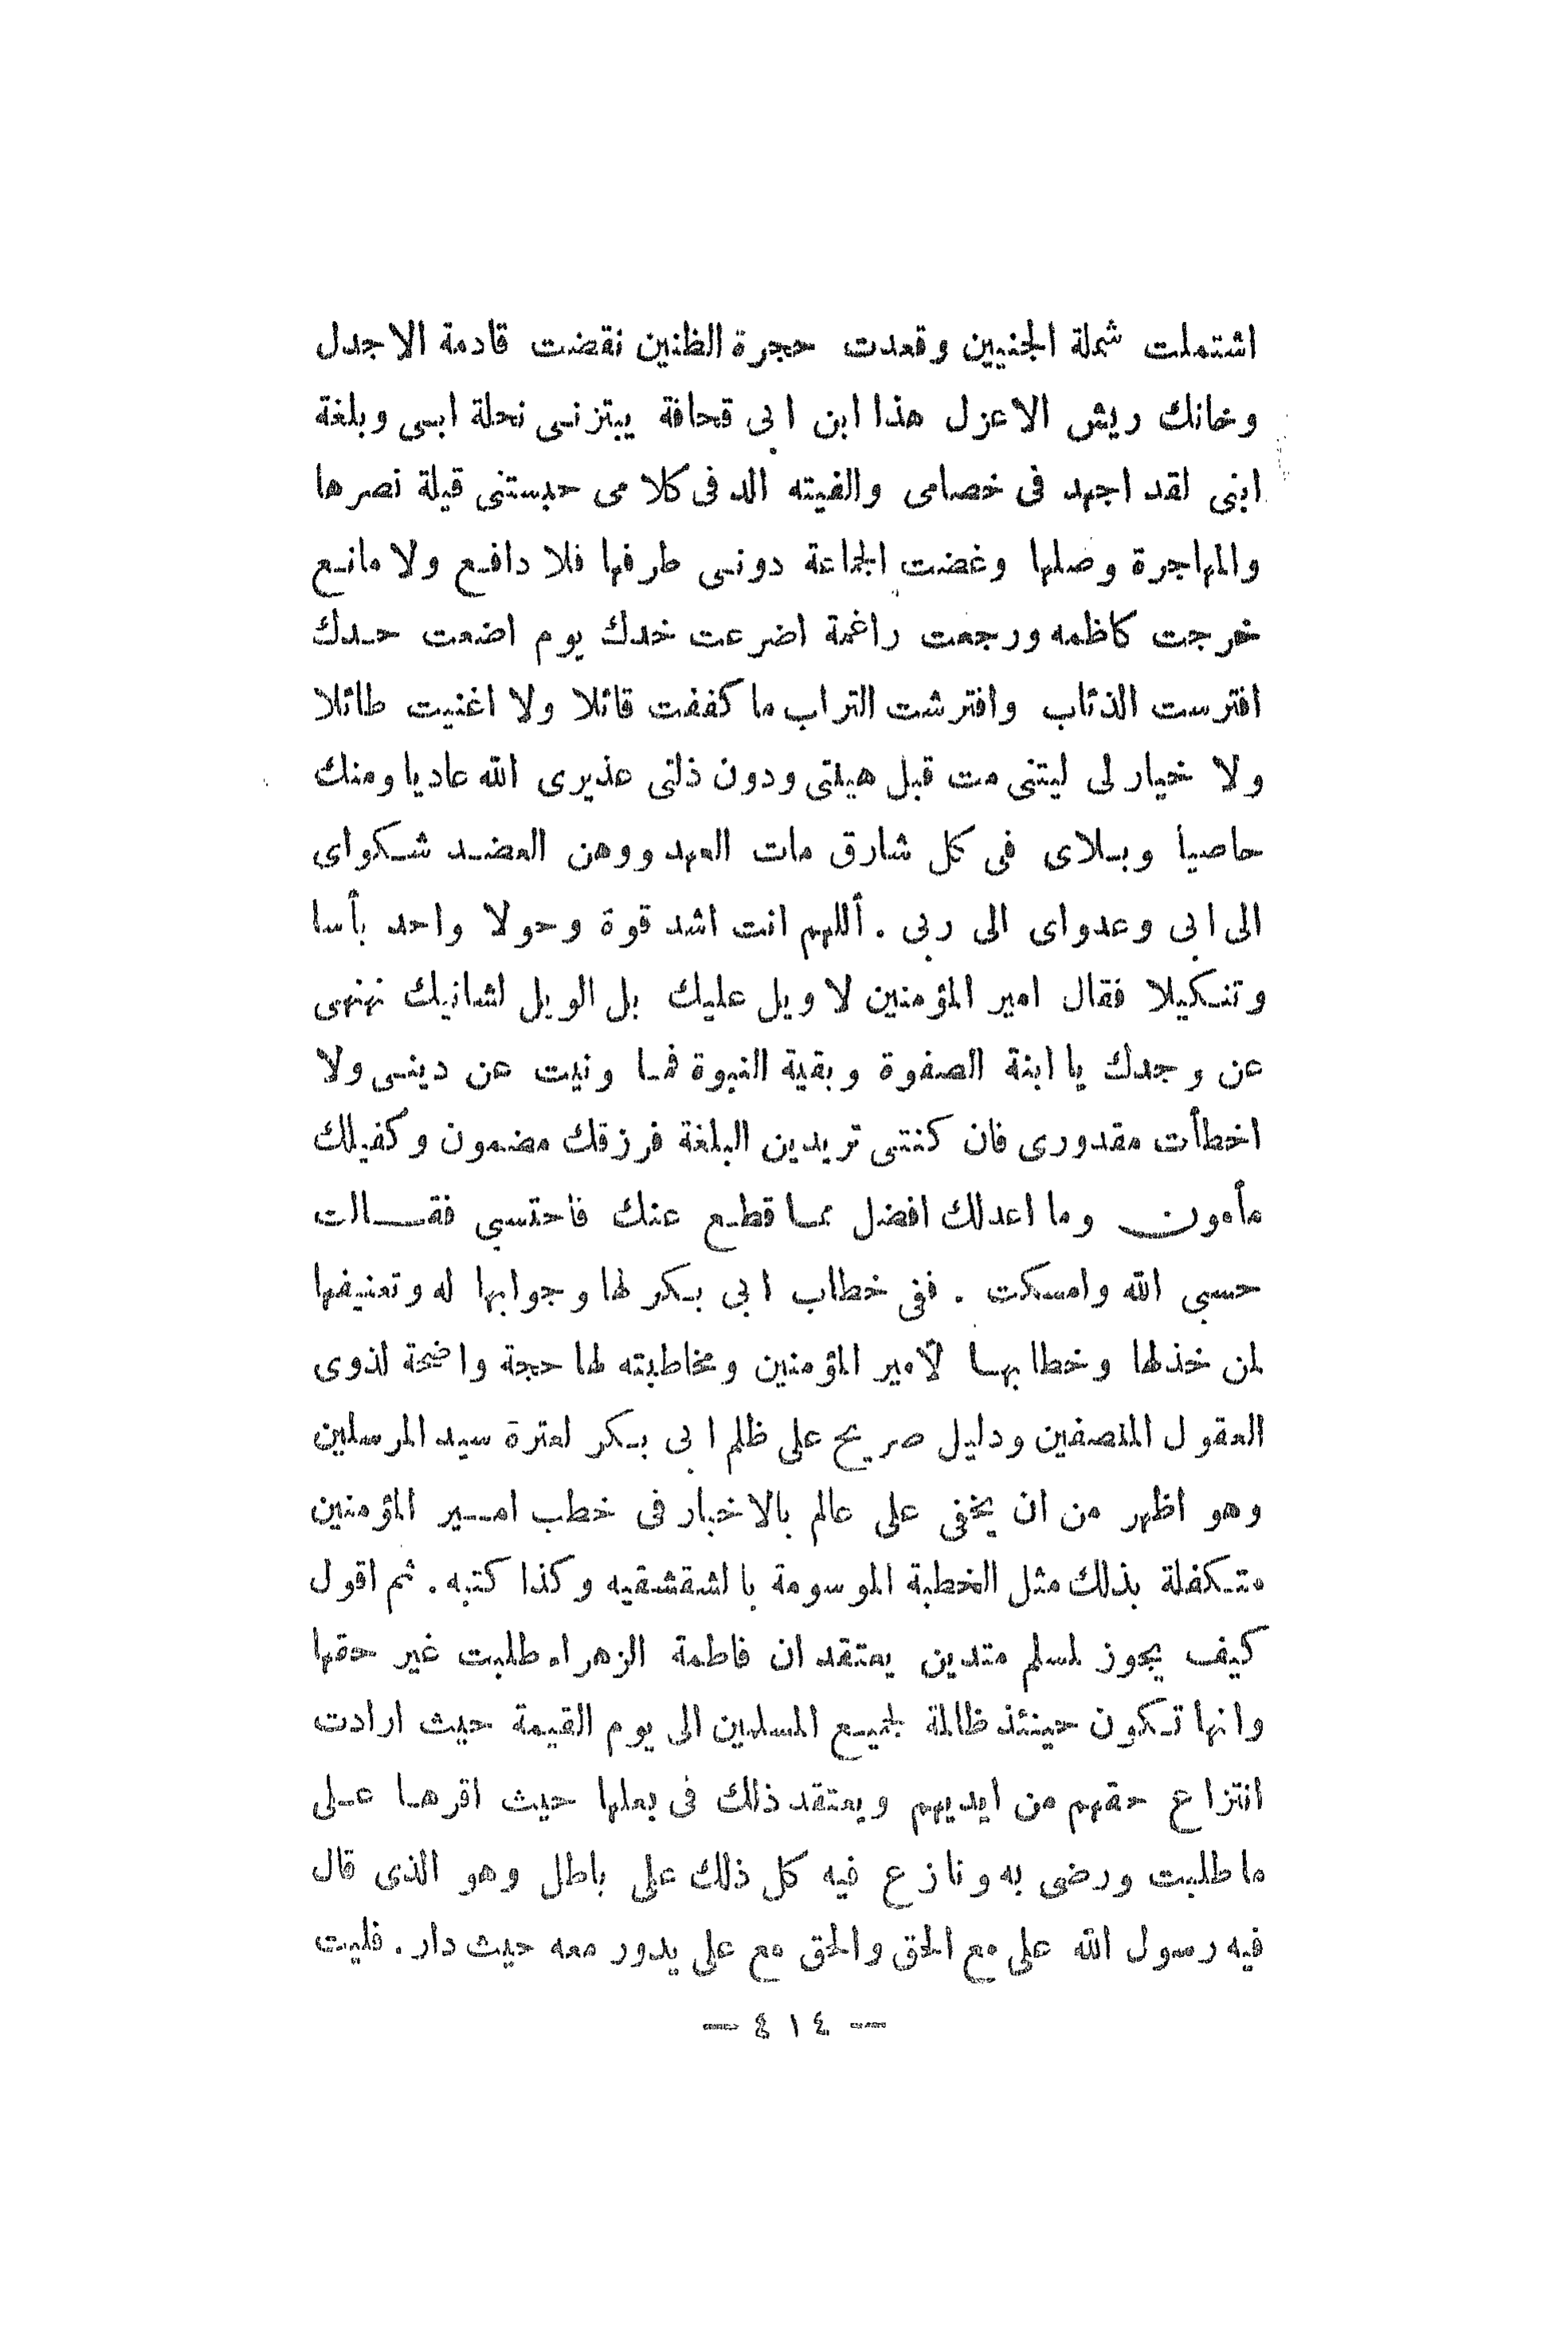 اشتملت شملة الجنيين وقعدت حجرة الظنين نقضت قادمة الاجدل
وخانك ريش الاعزل هذا ابن ابى قحافة يبتزنى نحلة ابى وبلغة
ابنى لقد اجهد فى خصامى والفيته الد فى كلامى حبستنى قيلة نصرها
والمهاجرة وصلها وغضت الجماعة دونى طرفها فلا دافع ولا مانع
خرجت كاظمه ورجعت راغمة اضرعت خدك يوم اضعت حدك
افترست الذئاب وافترشت التراب ما كففت قائلا ولا اغنيت طائلا
ولا خيار لى ليتنى مت قبل هيئتى ودون ذلتى عذيرى الله عاديا ومنك
حاصيا وبلاى فى كل شارق مات العهد ووهن العضد شكواى
الى ابى وعدواى الى ربى . أللهم انت اشد قوة وحولا واحد بأسا
وتنكيلا فقال امير المؤمنين لا ويل عليك بل الويل لشانيك نهنهى
عن وجدك يا ابنة الصفوة وبقية النبوة فما ونيت عن دينى ولا
اخطأت مقدورى فان كنتى تريدين البلغة فرزقك مضمون وكفيلك
مأمون وما اعدلك افضل مما قطع عنك فاحتسبي فقالت
حسبي الله وامسكت . ففى خطاب ابى بكر لها وجوابها له وتعنيفها
لمن خذلها وخطابها لأمير المؤمنين ومخاطبته لها حجة واضحة لذوى
العقول المنصفين ودليل صريح على ظلم ابى بكر لعترة سيد المرسلين
وهو اظهر من ان يخفى على عالم بالاخبار فى خطب امير المؤمنين
متكفلة بذلك مثل الخطبة الموسومة بالشقشقيه وكذا كتبه . ثم اقول
كيف يجوز لمسلم متدين يعتقد ان فاطمة الزهراء طلبت غير حقها
وانها تكون حينئذ ظالمة لجميع المسلمين الى يوم القيمة حيث ارادت
انتزاع حقهم من ايديهم ويعتقد ذلك فى بعلها حيث اقرها على
ما طلبت ورضى به ونازع فيه كل ذلك على باطل وهو الذى قال
فيه رسول الله على مع الحق والحق مع على يدور معه حيث دار . فليت
— ٤١٤ —